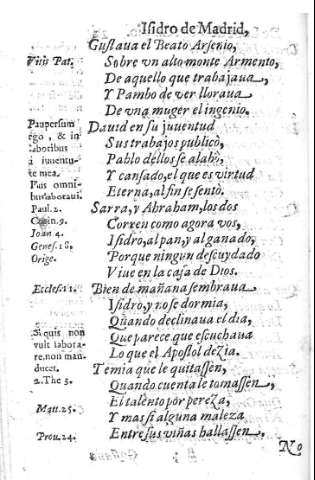 Isidro de Madrid,
Gustaua el Beato Arsenio,
Vitis Pat.
Sobre vn alto monte Armento,
De aquello que trabajaua,
Y Pambo de ver lloraua
De vna muger el ingenio.
Pauper sum
Dauid en su juuentud
ego, & in
Sus trabajos publicò,
laboribus
Pablo dellos se alabò,
a iuuentu-
te mea.
Y cansado, el que es virtud
omni-
Eterna, al fin se sentò.
bus laboraui.
Paul. 2.
Sarra, y Abraham, los dos
9.
Corren como agora vos,
Ioan 4.
Isidro, al pan, y al ganado,
Genes. 18.
Porque ningun descuydado
Orige.
Viue en la casa de Dios.
Eccles. 11.
Bien de mañana sembraua
Isidro, y no se dormia,
Quando declinaua el dia,
Si quis non
Que parece que escuchaua
vult labora-
re, non man-
Lo que el Apostol dezia.
ducet.
Temia que le quitassen,
2. The 3.
Quando cuenta le tomassen,
El talento por pereza,
Mat. 25.
Y mas si alguna maleza
Prou. 24.
Entre sus viñas hallassen,
No